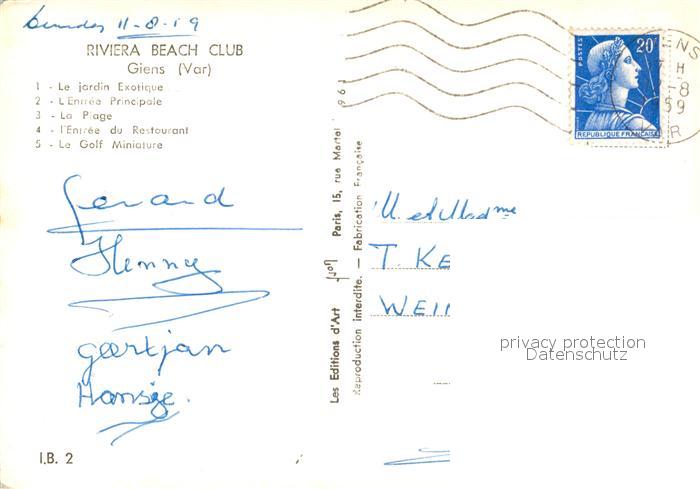 11-8-59
RIVIERA BEACH CLUB
Giens (Var)
1 - Le jardin Exotique
2 - L'Entrée Principale
3 - La Plage
4 - l'Entrée du Restourant
5 - Le Golf Miniature
Gerard
Henny
Geertjan
Hansje.
I.B. 2
Les Editions d'Art Yvon Paris, 15, rue Martel
Reproduction interdite. — Fabrication Française
961
POSTES
20F
REPUBLIQUE FRANÇAISE
GIENS
H
-8
59
VAR
M. et Madme
T. KE
WEII
privacy protection
Datenschutz